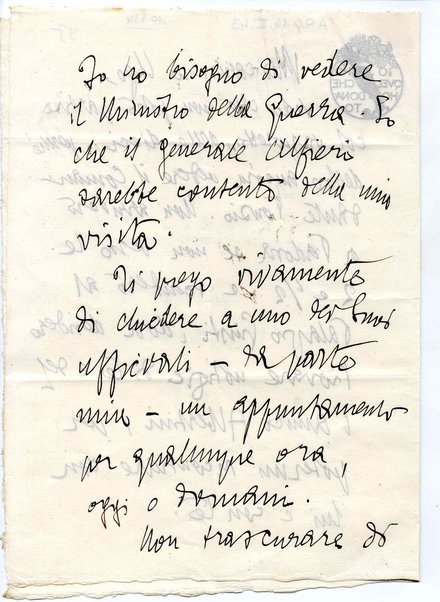 Io ho bisogno di vedere
il Ministro della Guerra. So
che il generale Alfieri
sarebbe contento della mia
visita.
Ti prego vivamente
di chiedere a uno dei suoi
ufficiali – da parte
mia – un appuntamento
per qualunque ora,
oggi o domani.
Non trascurare di